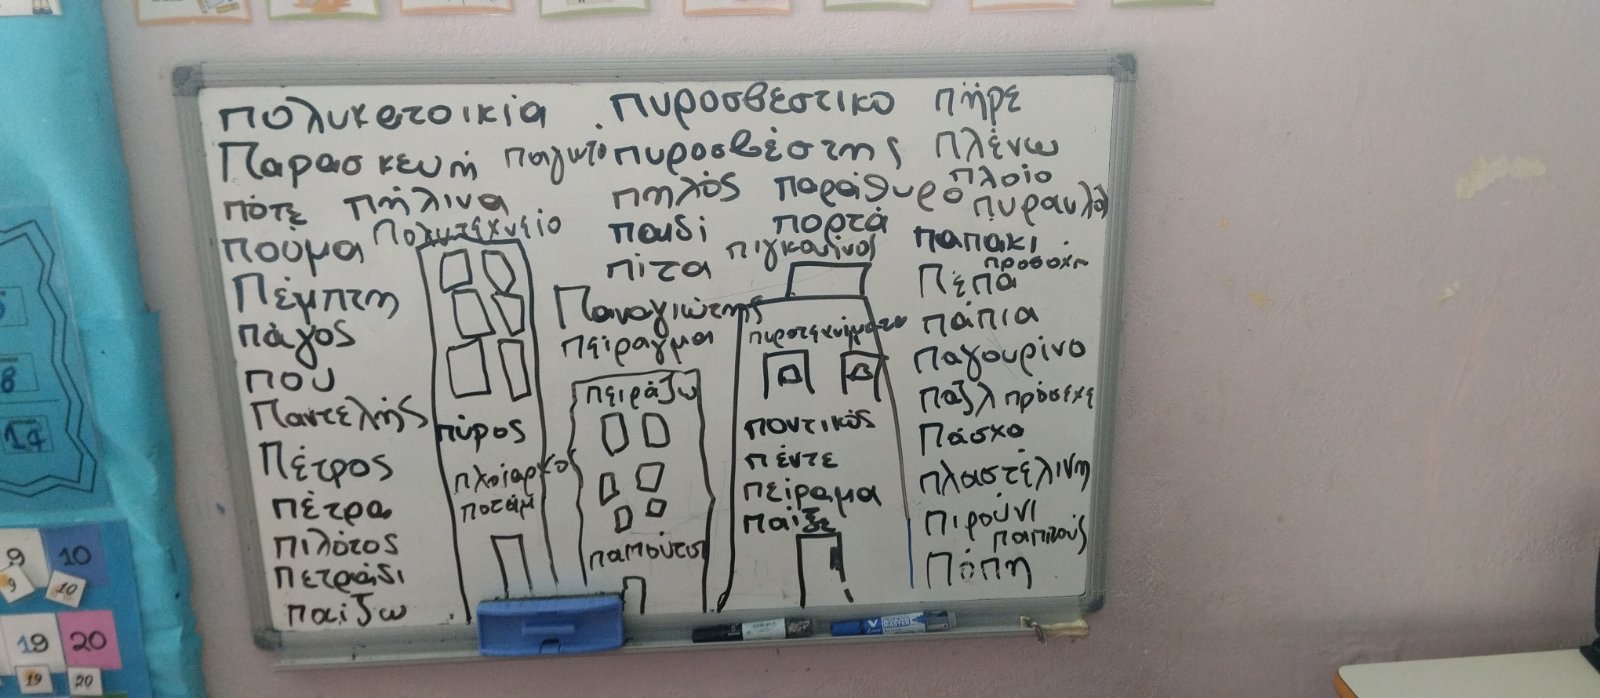 πολυκατοικία πυροσβεστικό πήρε
Παρασκευή παγωτό πυροσβέστης πλένω
πότε πήλινα πηλός παράθυρο πλοίο
πύραυλο
πούμα Πολυτεχνείο παιδί πορτά παπάκι
πίτα πιγκουίνος προσοχή
Πέμπτη Παναγιώτης Πέπα
πάγος πείραγμα πυροτεχνήματα πάπια
που πειράζω παγουρίνο
Παντελής πύρος ποντικός παζλ πρόσεχε
Πάσχα
Πέτρος πλοίαρχος πέντε πλαστελίνη
πέτρα ποτάμι πείραμα πιρούνι
παίξε παππούς
πιλότος παπούτσι Πόπη
πετράδι
παίζω
8
17
9 10
9 10
19 20
19 20